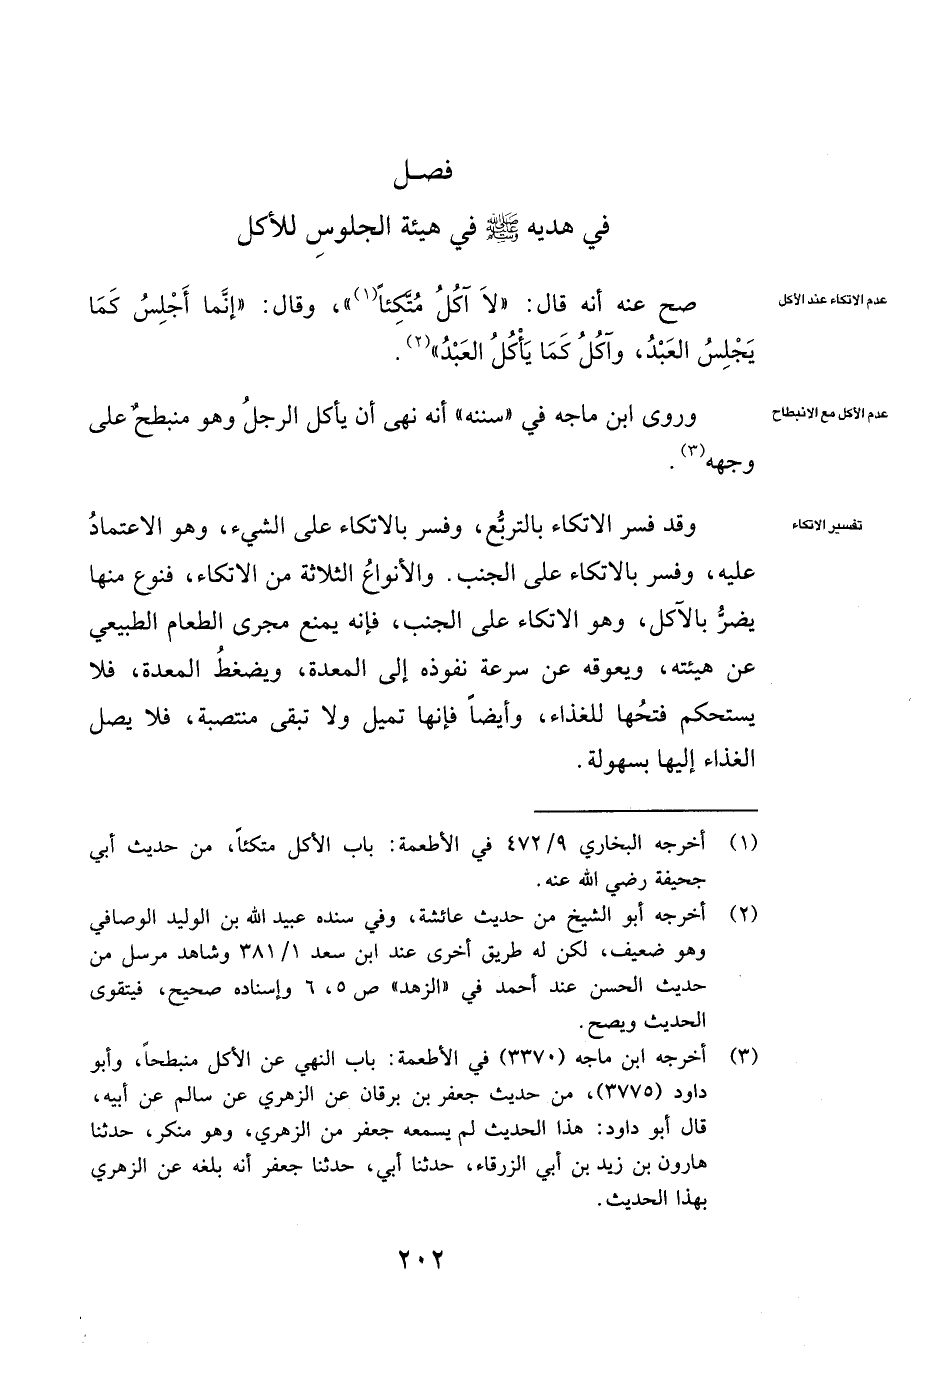 فصـل
في هديه ﷺ في هيئة الجلوسِ للأكل
عدم الاتكاء عند الأكل
صح عنه أنه قال: «لاَ آكُلُ مُتَّكِئاً(١)»، وقال: «إنَّما أَجْلِسُ كَمَا
يَجْلِسُ العَبْدُ، وآكُلُ كَمَا يَأْكُلُ العَبْدُ»(٢).
عدم الأكل مع الانبطاح
وروى ابن ماجه في «سننه» أنه نهى أن يأكل الرجلُ وهو منبطحٌ على
وجهه(٣).
تفسير الاتكاء
وقد فسر الاتكاء بالتربُّع، وفسر بالاتكاء على الشيء، وهو الاعتمادُ
عليه، وفسر بالاتكاء على الجنب. والأنواعُ الثلاثة من الاتكاء، فنوع منها
يضرُّ بالآكل، وهو الاتكاء على الجنب، فإنه يمنع مجرى الطعام الطبيعي
عن هيئته، ويعوقه عن سرعة نفوذه إلى المعدة، ويضغطُ المعدة، فلا
يستحكم فتحُها للغذاء، وأيضاً فإنها تميل ولا تبقى منتصبة، فلا يصل
الغذاء إليها بسهولة.
(١) أخرجه البخاري ٩/ ٤٧٢ في الأطعمة: باب الأكل متكئاً، من حديث أبي
جحيفة رضي الله عنه.
(٢) أخرجه أبو الشيخ من حديث عائشة، وفي سنده عبيد الله بن الوليد الوصافي
وهو ضعيف، لكن له طريق أخرى عند ابن سعد ١/ ٣٨١ وشاهد مرسل من
حديث الحسن عند أحمد في «الزهد» ص ٥، ٦ وإسناده صحيح، فيتقوى
الحديث ويصح.
(٣) أخرجه ابن ماجه (٣٣٧٠) في الأطعمة: باب النهي عن الأكل منبطحاً، وأبو
داود (٣٧٧٥)، من حديث جعفر بن برقان عن الزهري عن سالم عن أبيه،
قال أبو داود: هذا الحديث لم يسمعه جعفر من الزهري، وهو منكر، حدثنا
هارون بن زيد بن أبي الزرقاء، حدثنا أبي، حدثنا جعفر أنه بلغه عن الزهري
بهذا الحديث.
٢٠٢